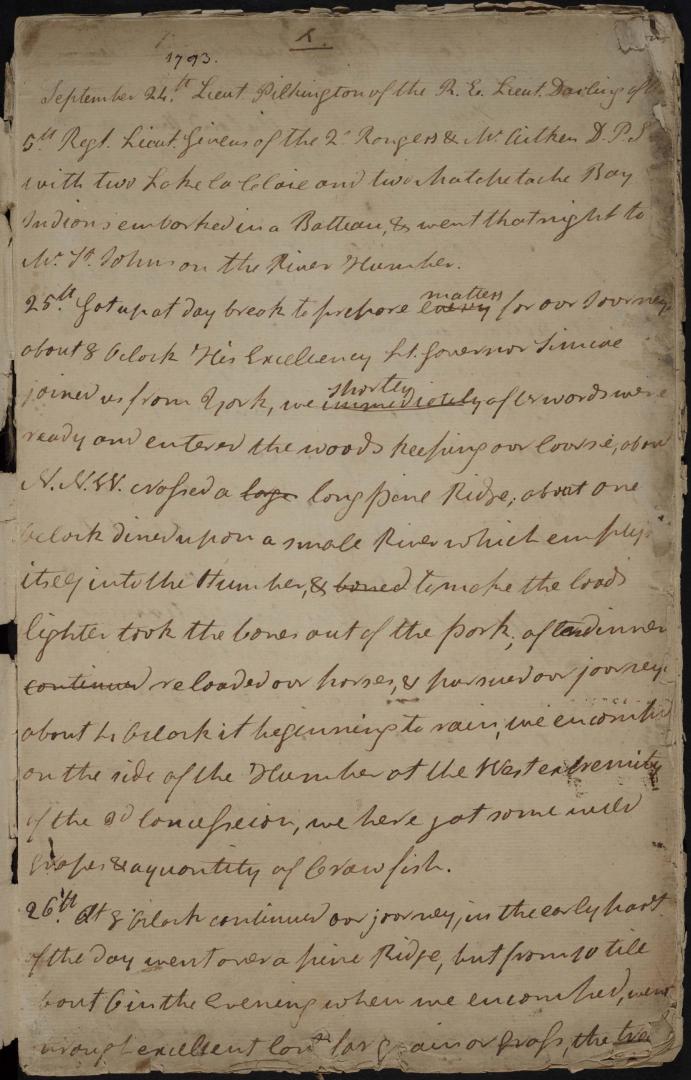 1.
1793.
September 24.th Lieut. Pilkington of the R. E. Lieut. Darling of
5th Regt. Lieut. Givens of the 2d Rangers & Mr. Aitken D.P.S
with two Lake la Claie and two Matchetache Bay
Indians embarked in a Batteau, & went that night to
Mr. St. Johns on the River Humber.
25.th Got up at day break to prepare every matters for our Journey
about 8 oClock His Excellency Lt. Governor Simcoe
joined us from York, we immediately shortly afterwards were
ready and entered the woods keeping our Course, about
N.N.W. crossed a large long pine Ridge; about one
oClock dined upon a small River which emptys
itself into the Humber, & boned to make the loads
lighter took the bones out of the pork; after dinner
continued reloaded our horses, & pursued our journey
about 4 oClock it beginning to rain, we encamped
on the side of the Humber at the West extremity
of the 3d Concession, we here got some wild
Grapes & a quantity of Craw fish.
26.th At 8 oClock continued our journey, in the early part
of the day went over a pine Ridge, but from 10 till
about 6 in the Evening when we encamped, went
through excellent land for grain or grass, the trees